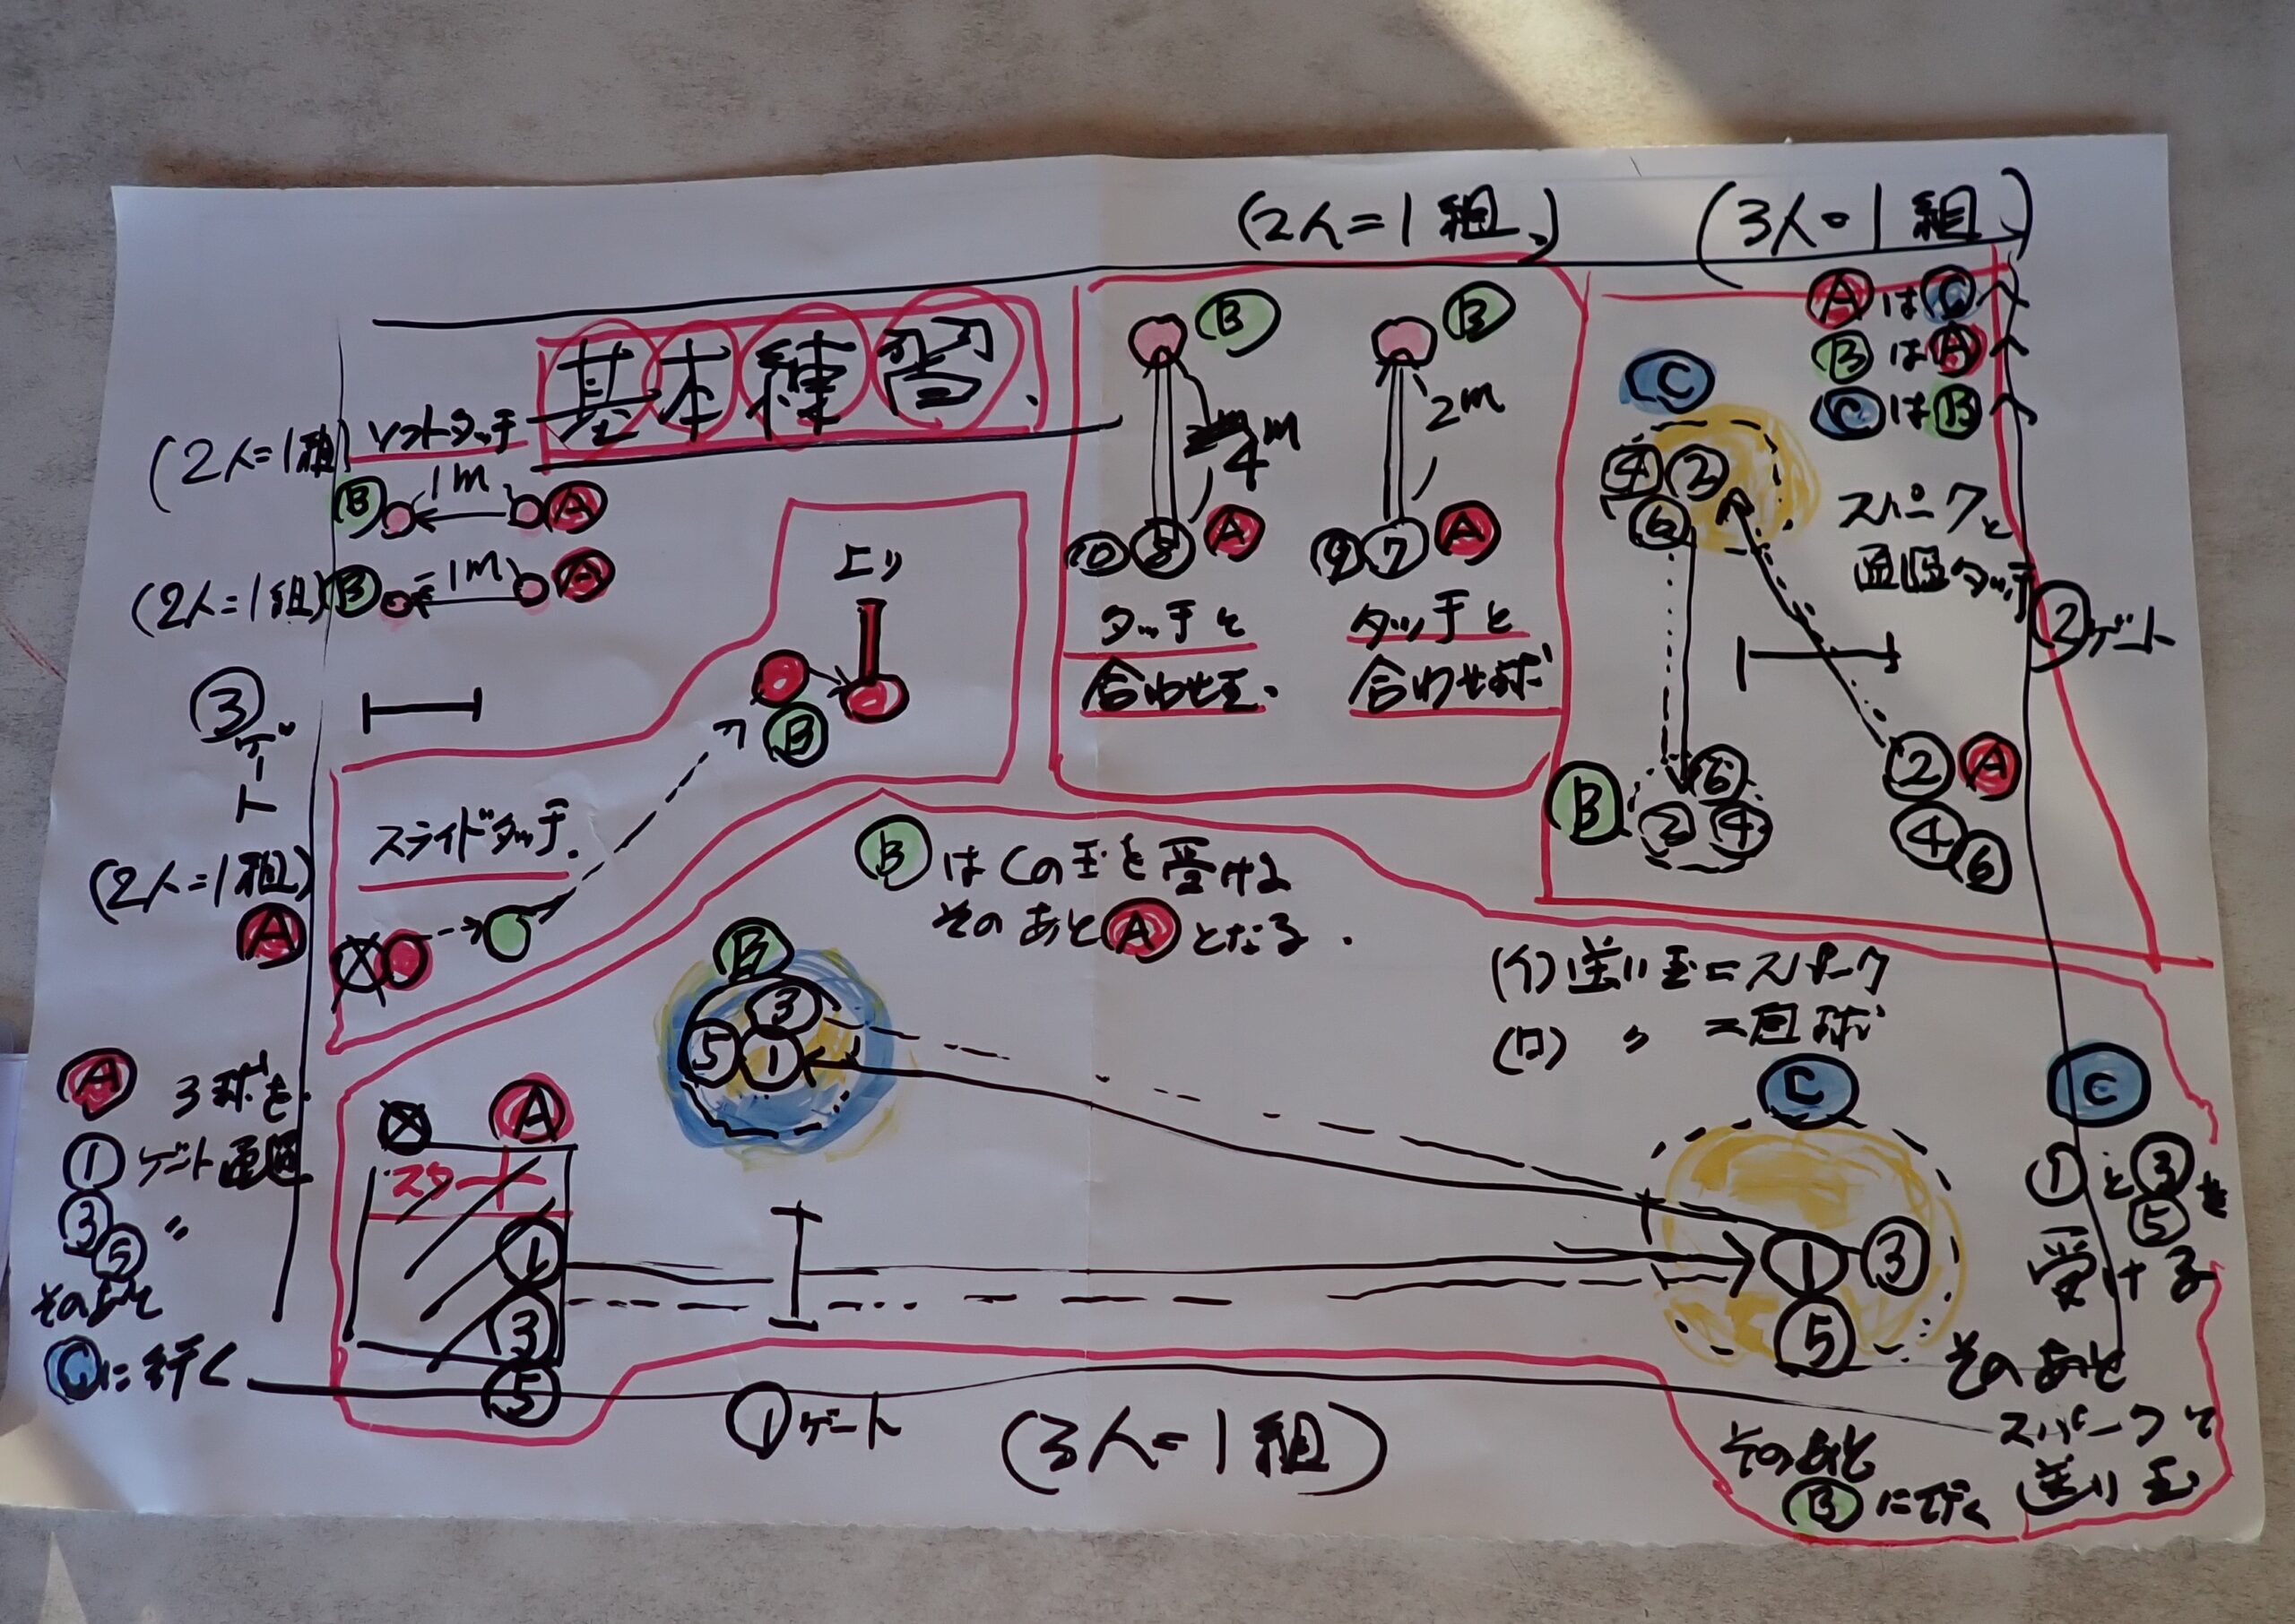 (2人=1組)
(3人=1組)
基本練習.
(2人=1組)
ソフトタッチ
Ⓑ 1m Ⓐ
(2人=1組)
Ⓑ 1m Ⓐ
③ゲート
(2人=1組)
Ⓐ
スライドタッチ.
上り
Ⓑ
Ⓑ
4m
⑩⑧Ⓐ
タッチと
合わせ玉.
Ⓑ
2m
⑨⑦Ⓐ
タッチと
合わせ球
ⒶはⒸへ
ⒷはⒶへ
ⒸはⒷへ
Ⓒ
④②
⑥
スパークと
通過タッチ
②ゲート
Ⓑ
⑥
②④
②Ⓐ
④⑥
ⒷはCの玉を受ける
そのあとⒶとなる.
(イ)送り玉=スパーク
(ロ) 〃 =回球
Ⓑ
③
⑤①
Ⓐ 3球を
①ゲート通過
③ 〃
⑤
そのあと
Ⓒに行く
Ⓐ
スタート
①
③
⑤
①ゲート
(3人=1組)
Ⓒ
①③
⑤
Ⓒ
①と③を
⑤
受ける
そのあと
スパークで
送り玉
そのあと
Ⓑに行く